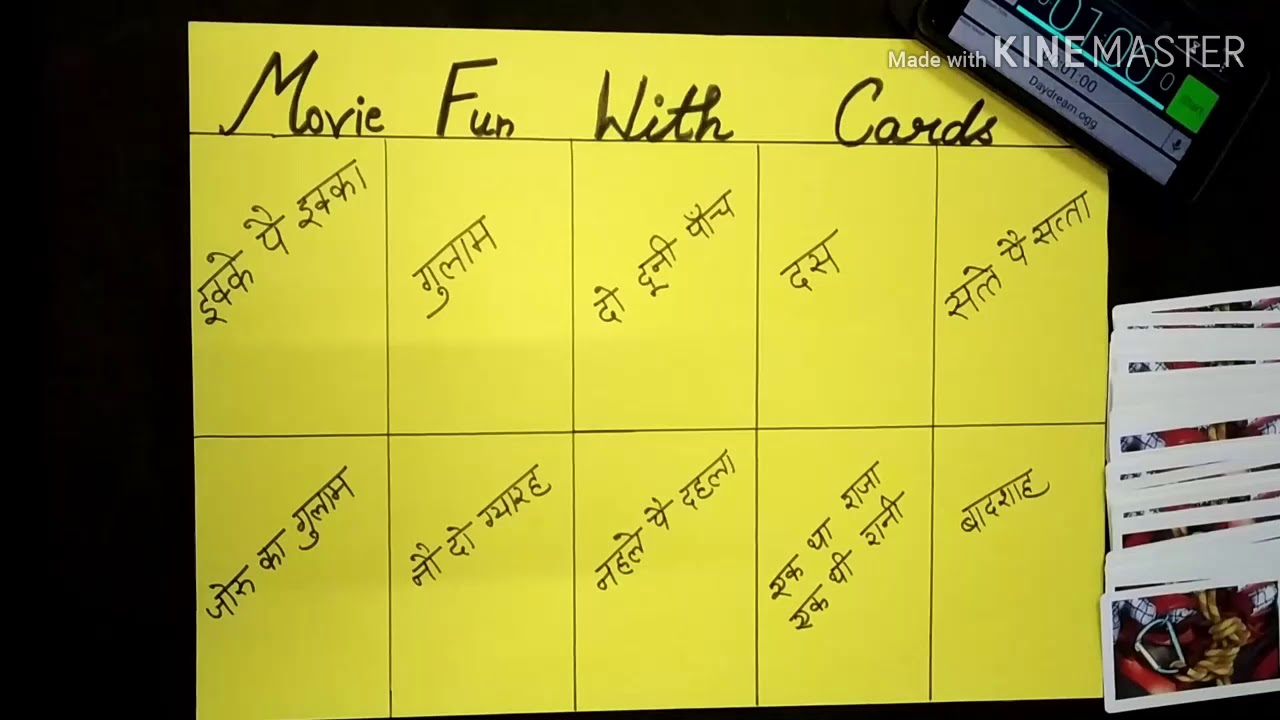 Made with KINEMASTER
01:00 0
01:00
Start
Daydream.ogg
Movie Fun With Cards
इक्के पै इक्का
गुलाम
दो दूनी पाँच
दस
सत्ते पै सत्ता
जोरू का गुलाम
नौ दो ग्यारह
नहले पै दहला
एक था राजा
एक थी रानी
बादशाह